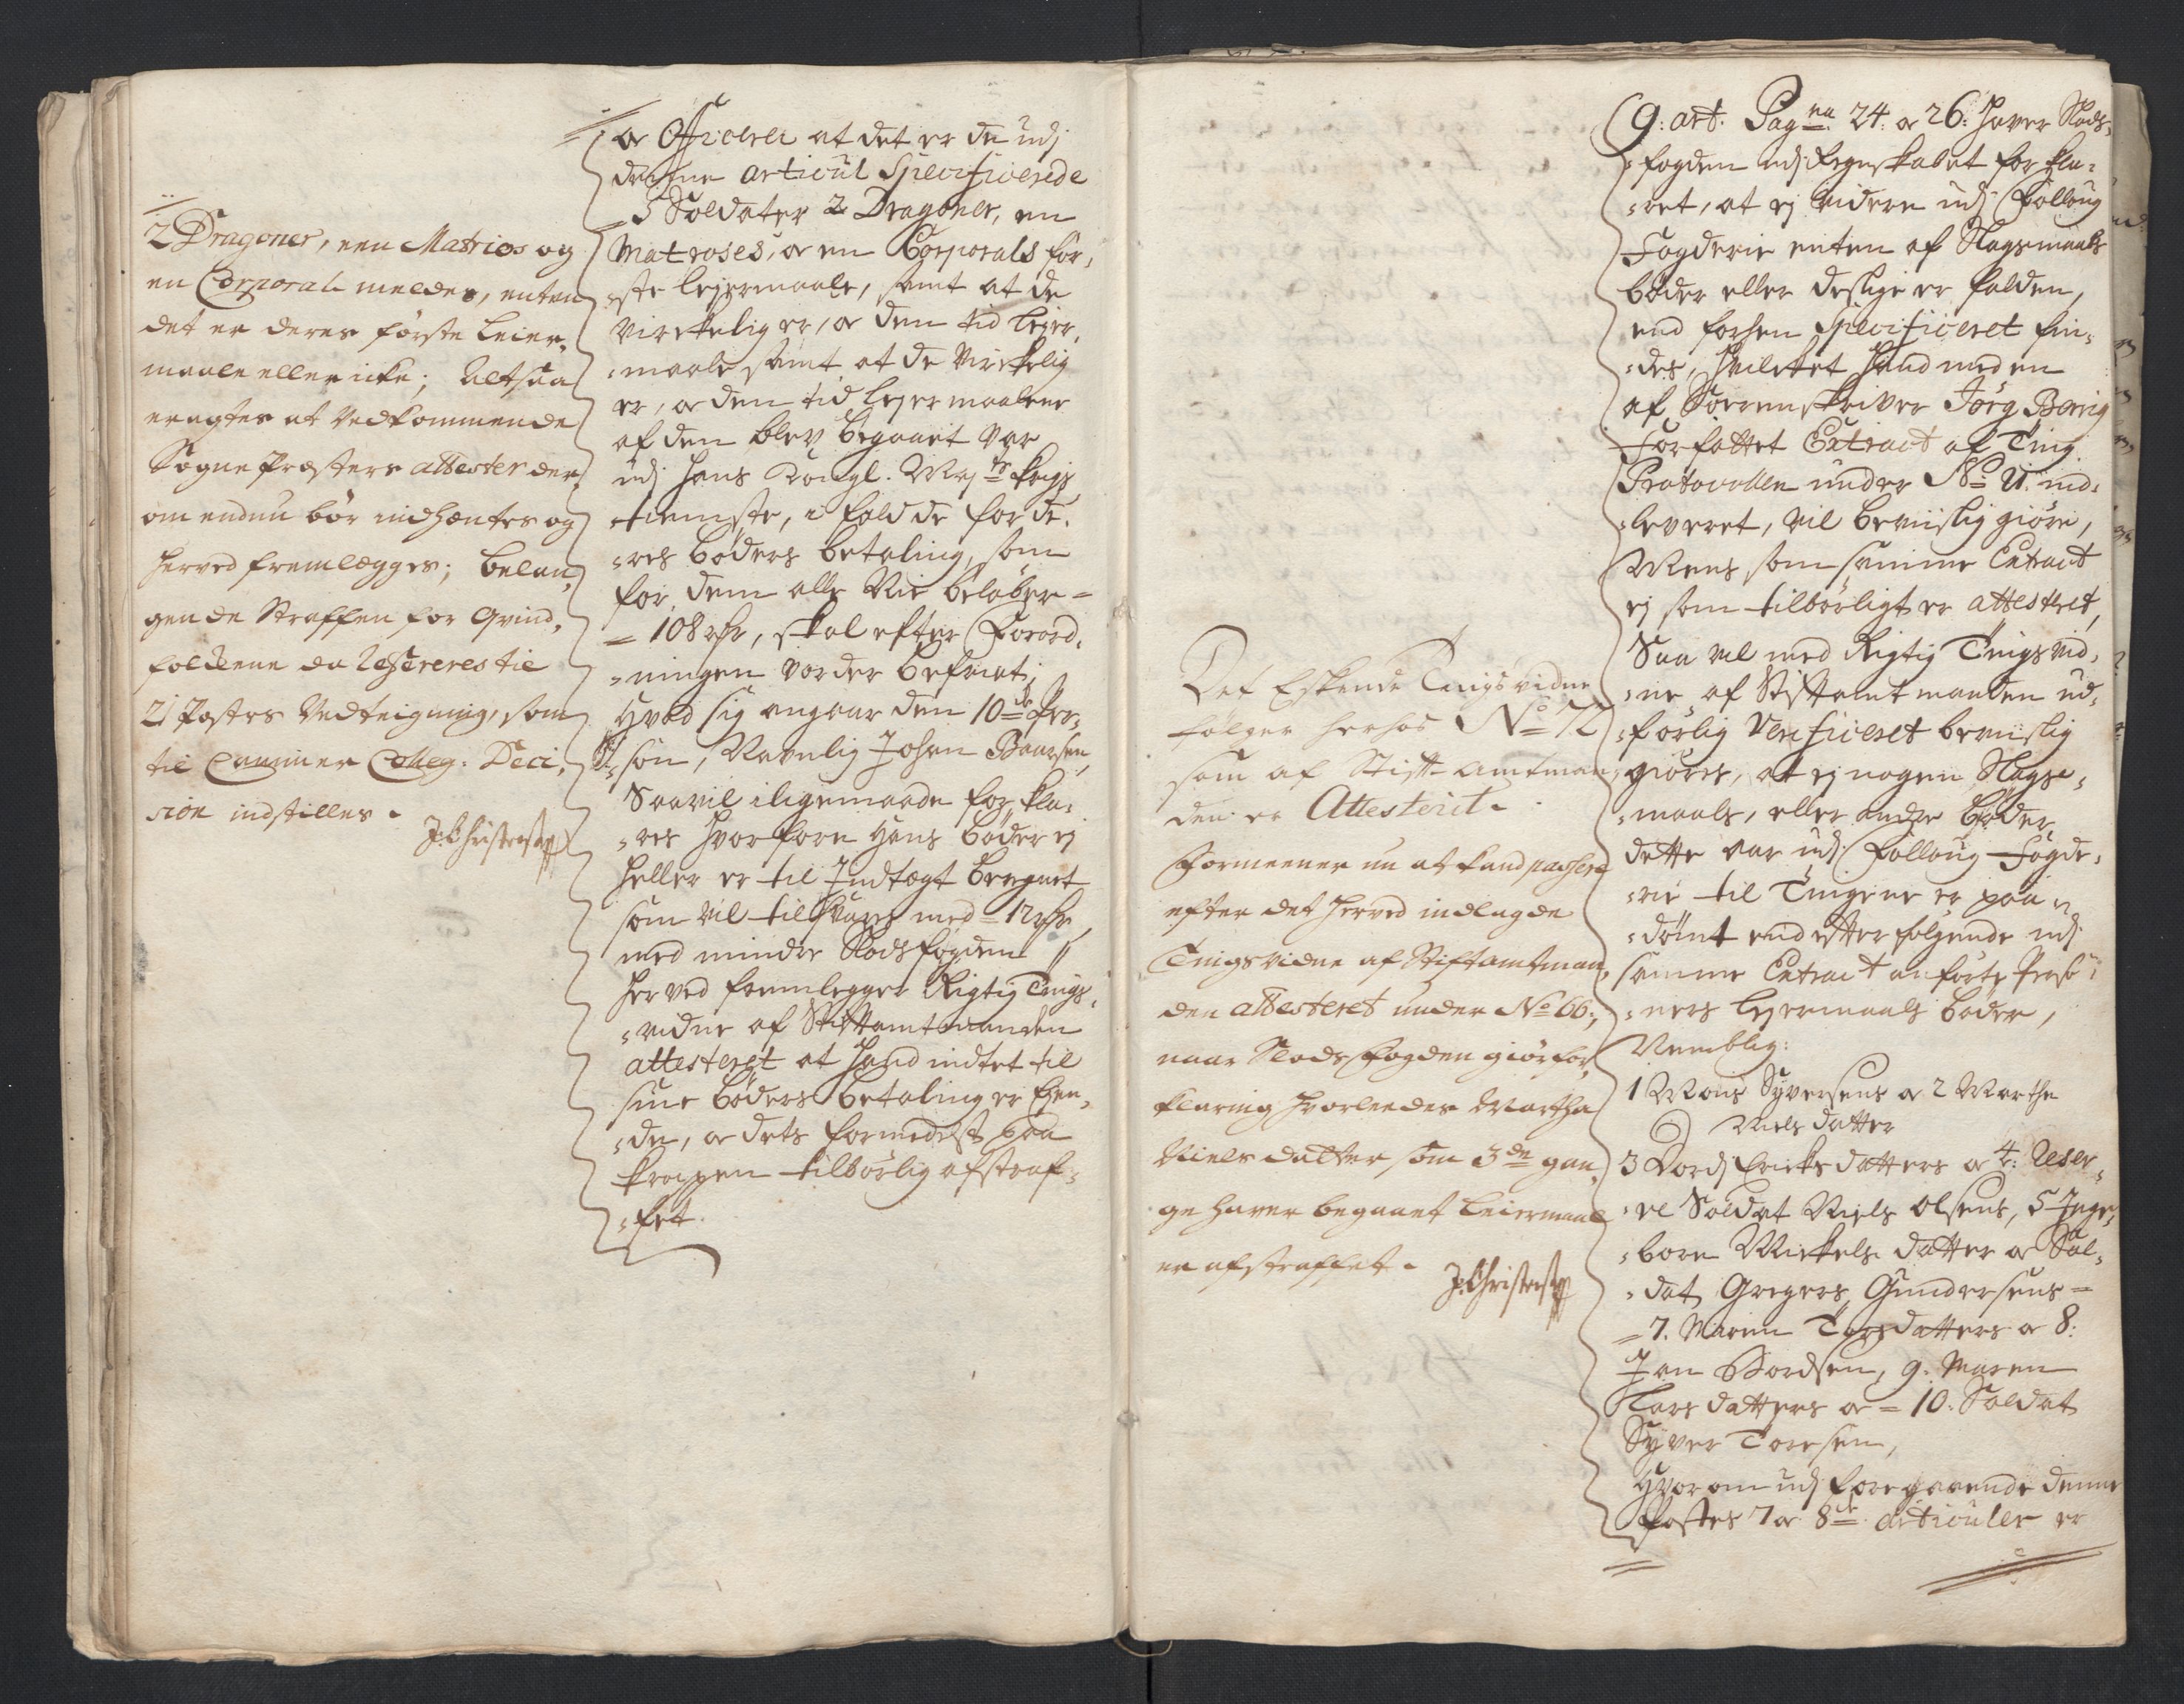 2 Dragoner, een Matrios og
en Corporal meldes, enten
det er deres første Leier„
maale eller icke; Altsaa
eragtes at Vedkommende
Sogne Præsters attester der„
om endnu bør indhæntes og
herved fremlægges; belan„
gende Straffen for Qvind„
folckene da Refereres til
21 Postes Vedteigning, som
til Cammer Colleg: Deci„
sion indstilles.
J. Christensen
og Officerer at det er de udj
denne articul Specificerede
5 Soldater 2 Dragoner, en
Matroses, og en Corporals før„
ste leyermaale, samt at de
virckelig er, og den tid leier„
„maale samt at de virckelig
er, og den tid leyermaalene
af dem blev begaaet var
udj hans Kongl. Maj ts krigs
tienneste, i fald de for de„
„res bøders betaling, som
for dem alle Nie beløber =
= 108 rdr, skal efter Forord„
„ningen vorder befriet;
Hvad sig angaar den 10de Per„
„son, Navnlig Johan Baarsen,
Saa vil iligemaade for kla„
„res hvorfore hans bøder ej
heller er til Indtægt beregnet
som vil til svares med = 12 rdr
med mindre Slodsfogden //
herved fremlegger Rigtig Tings„
„vidne af Stiftamtmanden
attesteret at hand indtet til
sine bøders betaling er Eyen„
„de, og dets formedelst paa
kroppen tilbørlig afstraf„
„fet.
Det Eskende Tingsvidne
følger herhos No 72
som af Stift-amtman„
den er Attesterit.
Formeener nu at kand passere
efter det herved indlagde
Tingsvidne af Stiftamtman„
den attesteret under No 66.,
naar Slodsfogden giør for„
klaring hvorleedes Martha
Niels datter som 3de gan„
ge haver begaaet Leiermaal
er afstraffet.
J. Christensen
9: art. Pagna 24: og 26: haver Slods„
„fogden udj Regnskabet for kla„
„ret, at ej videre udj Folloug
Fogderie enten af Slagsmaals
bøder eller deslige er falden,
end forhen Specificeret fin„
„des, hvilcket hand med en
af Sorrenskriver Jörg Borrig
Forfattet Extract af Ting
Protocollen under No 21. ind„
„leveret, vil beviislig giøre,
Mens som samme Extract
ej som tilbørligt er attesteret,
Saa vel med Rigtig Tingsvid„
„ne af Stiftamtmanden ud„
„førlig Verificeret beviislig
giøres, at ej nogen Slags„
„maals, eller andre bøder
dette aar udj Folloug Fogde„
„rie til Tingene er paa
„dømt end efterfølgende udj
samme Extract anførte Perso„
„ners leyermaals bøder,
Nemblig:
1 Mons Syversens og 2 Marthe
Niels datter
3 Dordj Ericks datters og 4: Reser„
„ve Soldat Niels Olsens, 5 Inge„
„bore Mickels datter og Sol„
„dat Gregers Gundersens =
= 7. Maren Torsdatters og 8:
Jan Bordsen, 9. Maren
Lars datters og = 10. Soldat
Syver Toresen,
Hvorom udj foregaaende denne
Postes 7 og 8de articuler er